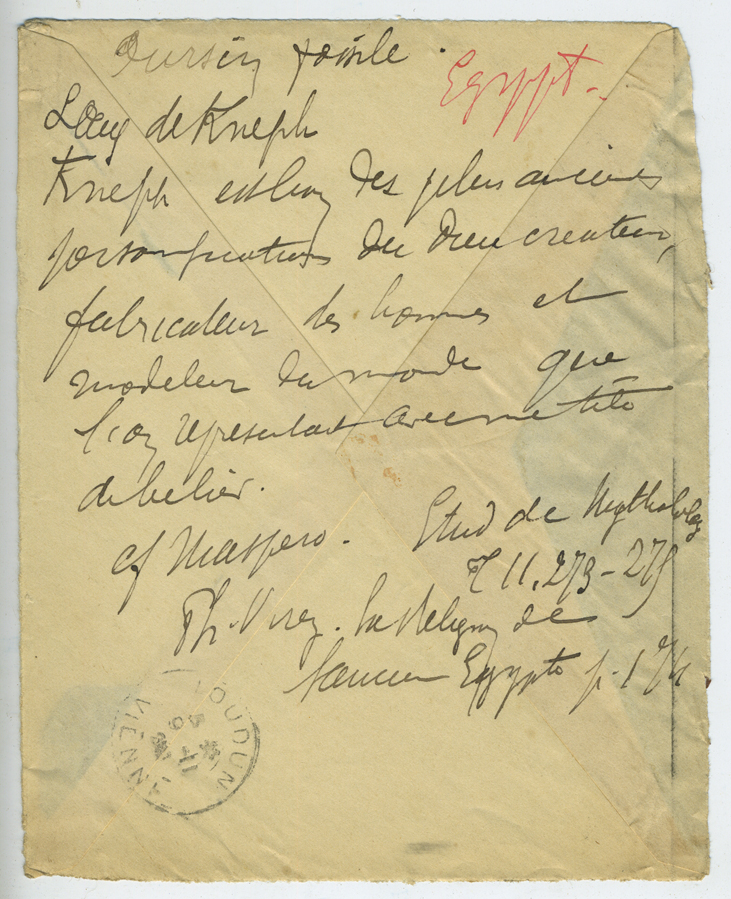 Oursin fossile.
Egypt.
L'Œuf de Kneph
Kneph est l'un des plus anciens
personnifications du dieu createur,
fabricateur des hommes et
modeleur du monde que
l'on représentait avec une tête
de belier.
cf Maspero. Etud de Mythology
T II. 273-275
Ph. Virey. La Religion de
l'ancien Egypte p. 174
LOUDUN
VIENNE